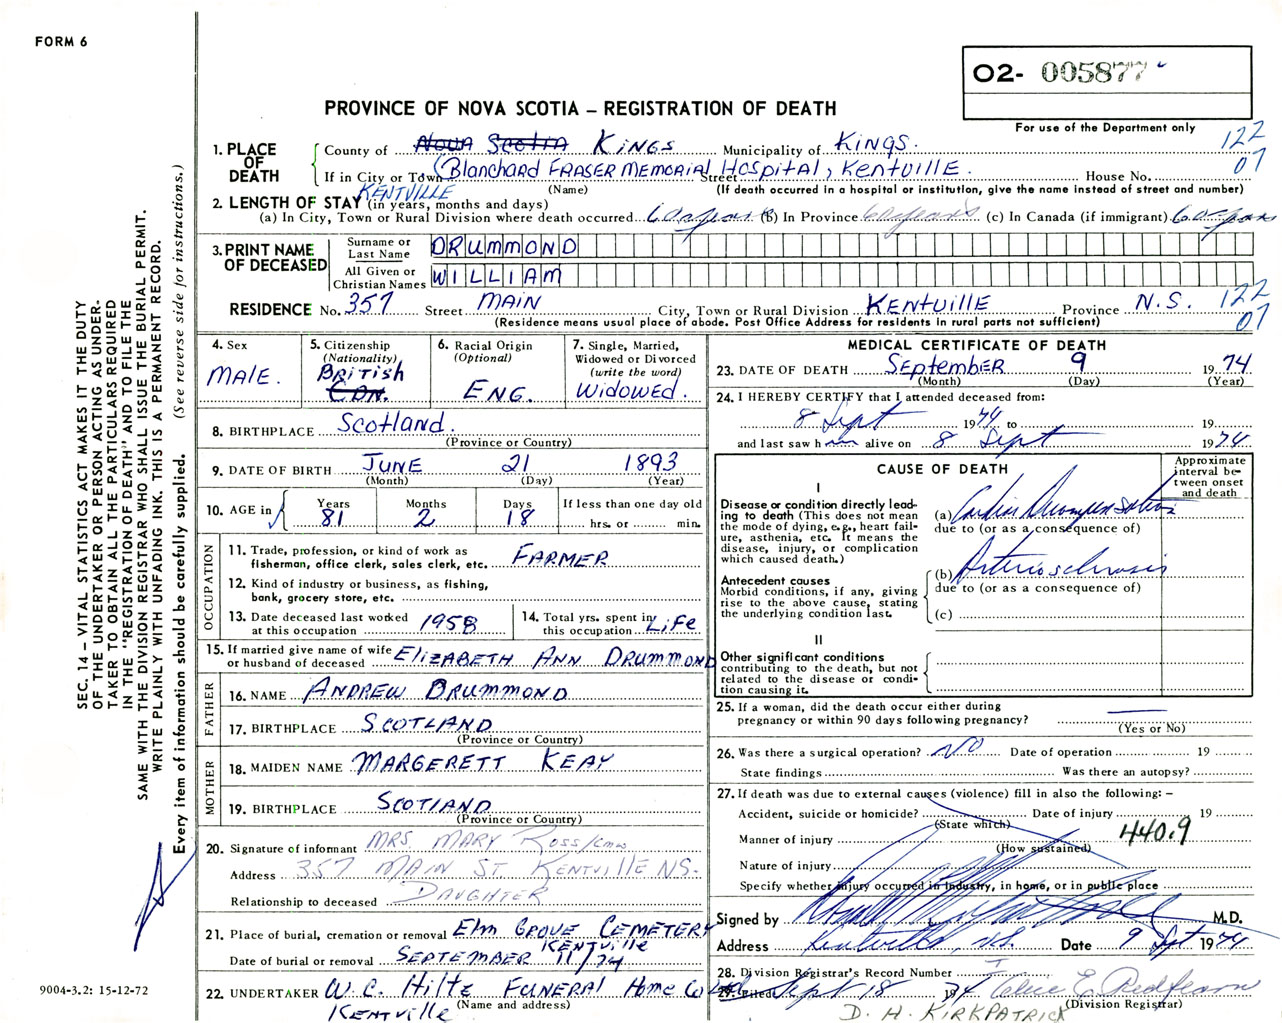 FORM 6
O2- 005877
PROVINCE OF NOVA SCOTIA – REGISTRATION OF DEATH
For use of the Department only
122
07
1. PLACE OF DEATH
County of Nova Scotia Kings Municipality of Kings.
If in City or Town (Blanchard FRASER MEMORIAL Hospital, Kentville. Street House No.
KENTVILLE (Name) (If death occurred in a hospital or institution, give the name instead of street and number)
2. LENGTH OF STAY (in years, months and days)
(a) In City, Town or Rural Division where death occurred 60 years (b) In Province 60 years (c) In Canada (if immigrant) 60 years
3. PRINT NAME OF DECEASED
Surname or Last Name DRUMMOND
All Given or Christian Names WILLIAM
RESIDENCE No. 357 Street MAIN City, Town or Rural Division KENTVILLE Province N.S. 122
(Residence means usual place of abode. Post Office Address for residents in rural parts not sufficient) 07
4. Sex
MALE.
5. Citizenship
(Nationality)
BRITISH
CDN.
6. Racial Origin
(Optional)
ENG.
7. Single, Married, Widowed or Divorced
(write the word)
WIDOWED.
8. BIRTHPLACE Scotland.
(Province or Country)
9. DATE OF BIRTH JUNE 21 1893
(Month) (Day) (Year)
10. AGE in
Years Months Days If less than one day old
81 2 18 hrs. or min.
OCCUPATION
11. Trade, profession, or kind of work as fisherman, office clerk, sales clerk, etc. FARMER
12. Kind of industry or business, as fishing, bank, grocery store, etc.
13. Date deceased last worked at this occupation 1958
14. Total yrs. spent in this occupation LIFE
15. If married give name of wife or husband of deceased ELIZABETH ANN DRUMMOND
FATHER
16. NAME ANDREW DRUMMOND
17. BIRTHPLACE SCOTLAND
(Province or Country)
MOTHER
18. MAIDEN NAME MARGERETT KEAY
19. BIRTHPLACE SCOTLAND
(Province or Country)
20. Signature of informant MRS. MARY ROSS/
Address 357 MAIN ST. KENTVILLE N.S.
Relationship to deceased DAUGHTER
21. Place of burial, cremation or removal Elm GROVE CEMETERY
KENTVILLE
Date of burial or removal SEPTEMBER 11/74
22. UNDERTAKER W.C. Hiltz FUNERAL Home Co Ltd
(Name and address)
KENTVILLE
MEDICAL CERTIFICATE OF DEATH
23. DATE OF DEATH SEPTEMBER 9 1974
(Month) (Day) (Year)
24. I HEREBY CERTIFY that I attended deceased from:
8 Sept 1974 to 19
and last saw him alive on 8 Sept 1974
CAUSE OF DEATH
Approximate interval between onset and death
I
Disease or condition directly leading to death (This does not mean the mode of dying, e.g., heart failure, asthenia, etc. It means the disease, injury, or complication which caused death.)
(a) Cardiac Decompensation
due to (or as a consequence of)
Antecedent causes
Morbid conditions, if any, giving rise to the above cause, stating the underlying condition last.
(b) Arteriosclerosis
due to (or as a consequence of)
(c)
II
Other significant conditions contributing to the death, but not related to the disease or condition causing it.
25. If a woman, did the death occur either during pregnancy or within 90 days following pregnancy? —
(Yes or No)
26. Was there a surgical operation? NO Date of operation 19
State findings Was there an autopsy?
27. If death was due to external causes (violence) fill in also the following: –
Accident, suicide or homicide? Date of injury 19
(State which)
Manner of injury 440.9
(How sustained)
Nature of injury
Specify whether injury occurred in industry, in home, or in public place
Signed by M.D.
Address Kentville, N.S. Date 9 Sept 1974
28. Division Registrar's Record Number
29. Filed Sept 18 1974 E. Redfearn
(Division Registrar)
D. H. KIRKPATRICK
SEC. 14 – VITAL STATISTICS ACT MAKES IT THE DUTY
OF THE UNDERTAKER OR PERSON ACTING AS UNDER-
TAKER TO OBTAIN ALL THE PARTICULARS REQUIRED
IN THE "REGISTRATION OF DEATH" AND TO FILE THE
SAME WITH THE DIVISION REGISTRAR WHO SHALL ISSUE THE BURIAL PERMIT.
WRITE PLAINLY WITH UNFADING INK. THIS IS A PERMANENT RECORD.
Every item of information should be carefully supplied. (See reverse side for instructions.)
9004-3.2: 15-12-72